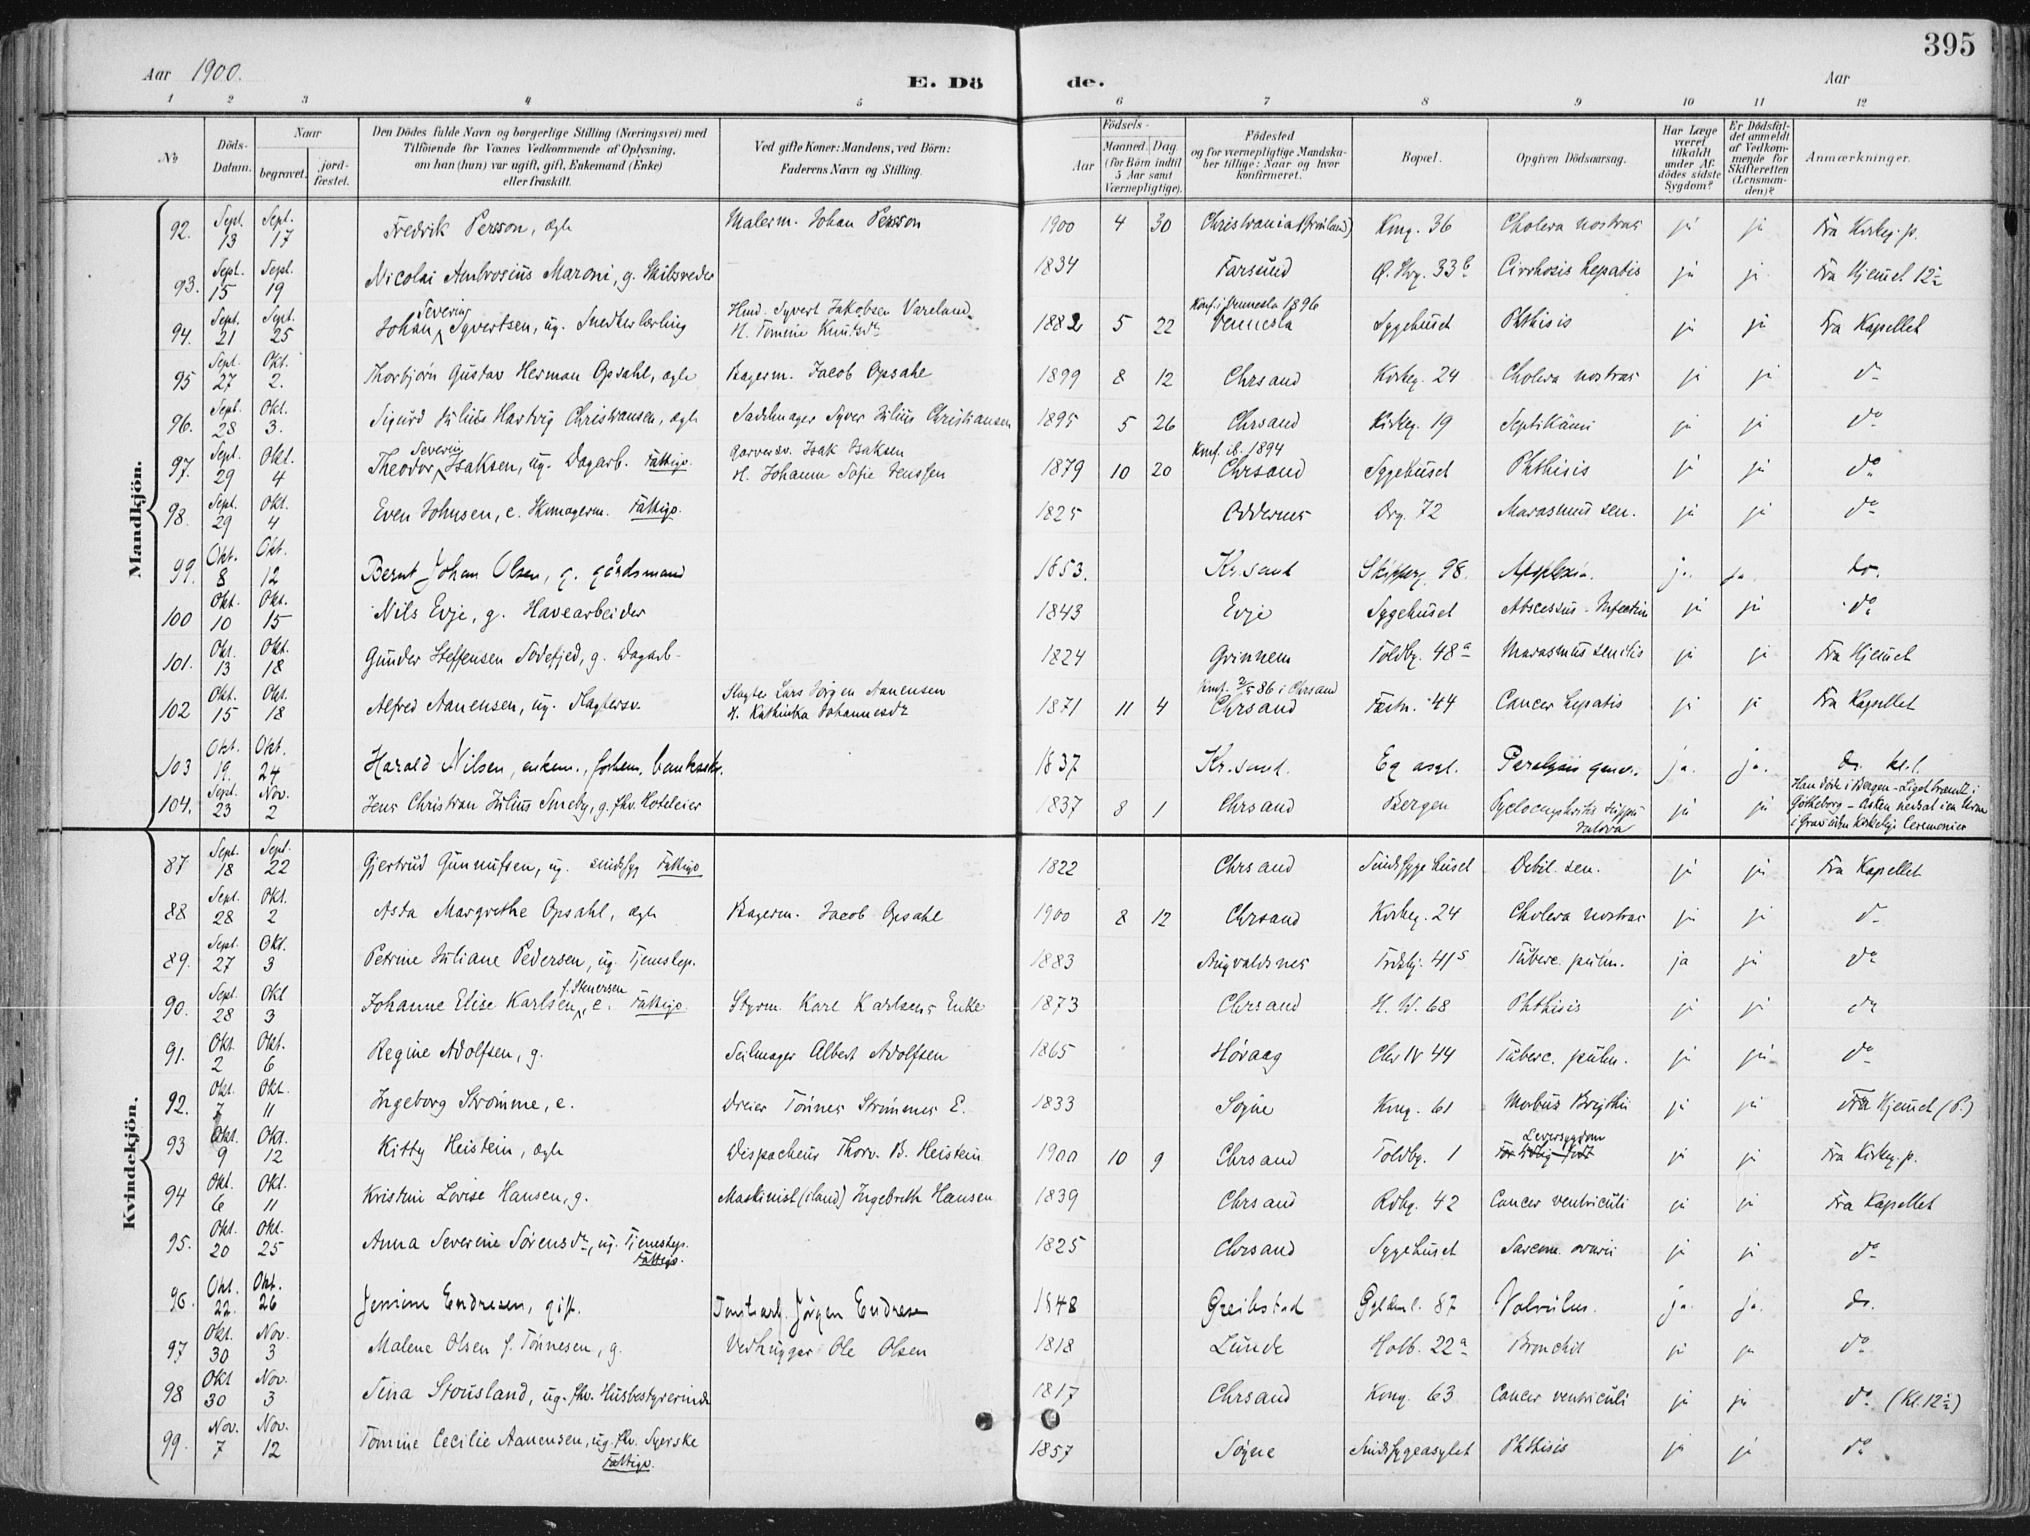 395
Aar 1900.
E. Dö
de.
Aar
1 2 3 4 5 6 7 8 9 10 11 12
No
Döds-Datum.
Naar
begravet.
jordfæstet.
Den Dödes fulde Navn og borgerlige Stilling (Næringsvei) med
Tilföiende for Voxnes Vedkommende af Oplysning,
om han (hun) var ugift, gift, Enkemand (Enke)
eller fraskilt.
Ved gifte Koner: Mandens, ved Börn:
Faderens Navn og Stilling.
Födsels-
Aar
Maaned. Dag
(for Börn indtil 5 Aar samt Værnepligtige).
Födested
og for værnepligtige Mandskaber tillige: Naar og hvor konfirmeret.
Bopæl.
Opgiven Dödsaarsag.
Har Læge været tilkaldt under Afdödes sidste Sygdom?
Er Dödsfaldet anmeldt af Vedkommende for Skifteretten (Lensmanden)?
Anmærkninger.
Mandkjön.
92. Sept. 13 Sept. 17 Fredrik Persson, ægte Malerm. Johan Persson 1900 4 30 Christiania (Grönland) Kong. 36 Cholera nostras ja ja Fra Kirkeg.p.
93. Sept. 15 Sept. 19 Nicolai Ambrosius Maroni, g. Skibsreder 1834 Farsund 33b Cirrhosis hepatis ja ja Fra Hjemet 12½
94. Sept. 21 Sept. 25 Johan Severin Syvertsen, ug. Snedkerlærling Hmd. Syvert Jakobsen Vareland H. Tomine Knutsdr 1882 5 22 Konf. i Vennesla 1896 Vennesla Sygehuset Phthisis ja ja Fra Kapellet
95 Sept. 27 Okt. 2. Thorbjörn Gustav Herman Opsahl, ægte Bagerm. Jacob Opsahl 1899 8 12 Chrsand Kirkeg. 24 Cholera nostras ja ja do
96. Sept. 28 Okt. 3. Sigurd Julius Hartvig Christiansen, ægte Sadelmager Syver Julius Christiansen 1895 5 26 Chrsand Kirkeg. 19 Septikämi ja ja do
97. Sept. 29 Okt. 4 Theodor Severin Isaksen, ug. Dagarb. Fattigv. Garversv. Isak Isaksen H. Johanne Sofie Jenssen 1879 10 20 Konf. ib. 1894 Chrsand Sygehuset Phthisis ja ja do
98. Sept. 29 Okt. 4 Even Johnsen, e. Skomagerm. Fattigv. 1825 Oddernes Drg. 72 Marasmus sen. ja ja do
99. Okt. 8 Okt. 12 Bernt Johan Olsen, g. gårdsmand 1853. Kr.sand Skipperg. 98. Apoplexia. ja. ja. do.
100 Okt. 10 Okt. 15 Nils Evje, g. Havearbeider 1843 Evje Sygehuset Abscessus - Infection ja ja do
101. Okt. 13 Okt. 18 Gunder Steffensen Tödefjed, g. Dagarb. 1824 Toldbg. 48a Marasmus senilis ja ja Fra Hjemet
102 Okt. 15 Okt. 18 Alfred Aanensen, ug. Slagtersv. Slagter Lars Jörgen Aanensen H. Kathinka Johannesdr 1871 11 4 Konf. 2/5 86 i Chrsand Chrsand Festn. 44 Cancer hepatis ja ja Fra Kapellet
103 Okt. 19. Okt. 24 Harald Nilsen, enkem., forhen. 1837 Kr.sand. Eg asyl. Paralysis gener. ja. ja. do. kl. 1.
104. Sept. 23 Nov. 2 Jens Christian Julius Smeby, g. fhv. Hoteleier 1837 8 1 Chrsand Bergen Pyelonephritis suppurativa ja ja Han döde i Bergen - Liget brændt i Götheborg - Asken nedsat i en Urne i Grav uden Kirkelige Ceremonier
Kvindekjön.
87 Sept. 18 Sept. 22 Gjertrud Gunnufsen, ug. sindssyg Fattigv 1822 Chrsand Sindssygehuset Debil. sen. ja ja Fra Kapellet
88 Sept. 28 Okt. 2 Asta Margrethe Opsahl, ægte Bagerm. Jacob Opsahl 1900 8 12 Chrsand Kirkeg. 24 Cholera nostras ja ja do
89. Sept. 27 Okt. 3 Petrine Juliane Pedersen, ug. Tjenstep. 1883 Augvaldsnes 41 Tuberc. pulm. ja ja do
90. Sept. 28 Okt 3 Johanne Elise Karlsen f. Stenersen, e. Fattigv. Styrm. Karl Karlsens Enke 1873 Chrsand H. W. 68 Phthisis ja ja do
91. Okt. 2 Okt. 6 Regine Adolfsen, g. Seilmager Albert Adolfsen 1865 Hövaag Chr IV 44 Tuberc. pulm. ja ja do
92. Okt. 7 Okt. 11 Ingeborg Strömme, e. Dreier Tönnes Strömmes E. 1833 Sögne Kong. 61 Morbus Brigthii ja ja Fra Hjemet (P.)
93 Okt. 9 Okt. 12 Kitty Heistein, ægte Dispacheur Thorv. B. Heistein 1900 10 9 Chrsand Toldbg. 1 Leversygdom For tidlig födt ja ja Fra Kirkeg.p.
94 Okt. 6 Okt. 11 Kristine Lovise Hansen, g. Maskinist (iland) Ingebreth Hansen 1839 Chrsand Rdhg. 42 Cancer ventriculi ja ja Fra Kapellet
95. Okt. 20 Okt. 25 Anna Severine Sörensdr, ug. Tjenestep. Fattigv. 1825 Chrsand Sygehuset Sarcom. ovarii ja ja do
96. Okt. 22. Okt. 26 Jemine Endresen, gift. Tomtearb. Jörgen Endresen 1848 Greibstad Gyldenl. 87 Volvulus. ja. ja. do.
97 Okt. 30 Nov. 3 Malene Olsen f. Tönnesen, g. Vedhugger Ole Olsen 1818 Lunde Holb. 22a Bronchit ja ja do
98 Okt 30 Nov. 3 Sina Stousland, ug. fhv. Husbestyrerinde 1817 Chrsand Kong. 63 Cancer ventriculi ja ja do (Kl. 12½)
99. Nov. 7 Nov. 12 Tomine Cecilie Aanensen, ug. fhv. Syerske Fattigv. 1857 Sögne Sindssygeasylet Phthisis ja ja do